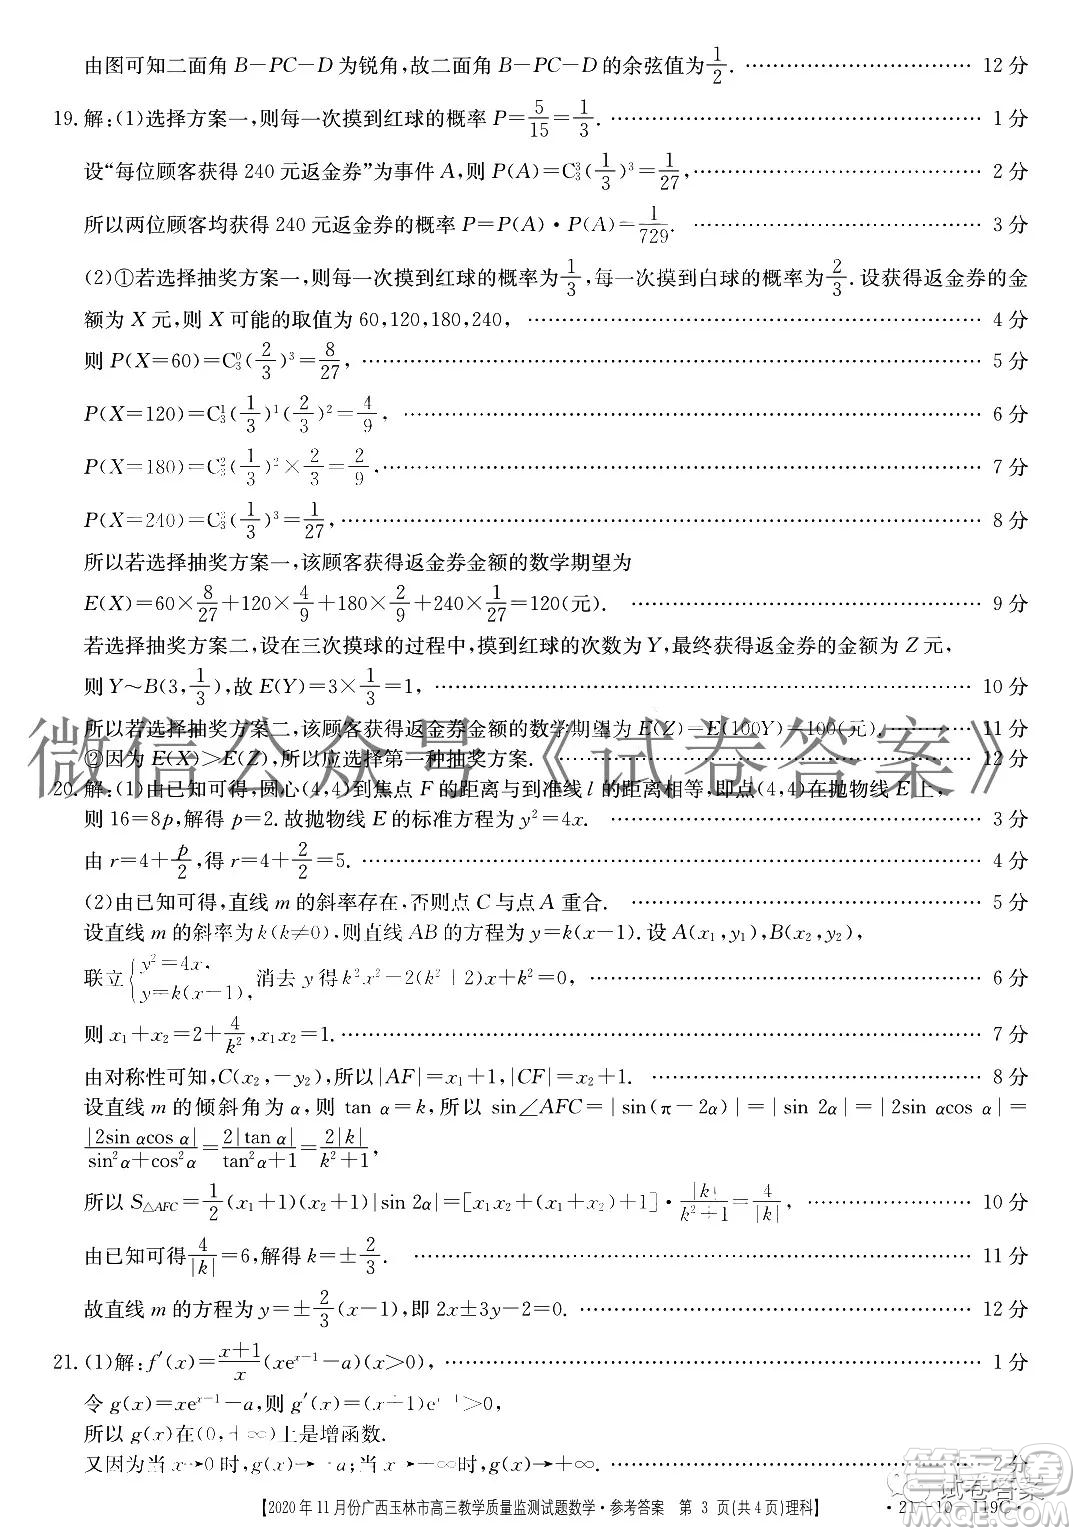 由图可知二面角 B-PC-D 为锐角,故二面角 B-PC-D 的余弦值为 1/2. …… 12 分
19. 解:(1)选择方案一,则每一次摸到红球的概率 P=5/15=1/3. …… 1 分
设“每位顾客获得 240 元返金券”为事件 A,则 P(A)=C₃³(1/3)³=1/27, …… 2 分
所以两位顾客均获得 240 元返金券的概率 P=P(A)·P(A)=1/729. …… 3 分
(2)①若选择抽奖方案一,则每一次摸到红球的概率为 1/3,每一次摸到白球的概率为 2/3. 设获得返金券的金
额为 X 元,则 X 可能的取值为 60,120,180,240, …… 4 分
则 P(X=60)=C₃⁰(2/3)³=8/27, …… 5 分
P(X=120)=C₃¹(1/3)¹(2/3)²=4/9, …… 6 分
P(X=180)=C₃²(1/3)²×2/3=2/9, …… 7 分
P(X=240)=C₃³(1/3)³=1/27, …… 8 分
所以若选择抽奖方案一,该顾客获得返金券金额的数学期望为
E(X)=60×8/27+120×4/9+180×2/9+240×1/27=120(元). …… 9 分
若选择抽奖方案二,设在三次摸球的过程中,摸到红球的次数为 Y,最终获得返金券的金额为 Z 元,
则 Y~B(3,1/3),故 E(Y)=3×1/3=1, …… 10 分
所以若选择抽奖方案二,该顾客获得返金券金额的数学期望为 E(Z)=E(100Y)=100(元). …… 11 分
②因为 E(X)>E(Z),所以应选择第一种抽奖方案. …… 12 分
微信公众号《试卷答案》
20. 解:(1)由已知可得,圆心(4,4)到焦点 F 的距离与到准线 l 的距离相等,即点(4,4)在抛物线 E 上,
则 16=8p,解得 p=2. 故抛物线 E 的标准方程为 y²=4x. …… 3 分
由 r=4+p/2,得 r=4+2/2=5. …… 4 分
(2)由已知可得,直线 m 的斜率存在,否则点 C 与点 A 重合. …… 5 分
设直线 m 的斜率为 k(k≠0),则直线 AB 的方程为 y=k(x-1). 设 A(x₁,y₁),B(x₂,y₂),
联立{y²=4x, y=k(x-1), 消去 y 得 k²x²-2(k²+2)x+k²=0. …… 6 分
则 x₁+x₂=2+4/k²,x₁x₂=1. …… 7 分
由对称性可知,C(x₂,-y₂),所以|AF|=x₁+1,|CF|=x₂+1. …… 8 分
设直线 m 的倾斜角为 α,则 tan α=k,所以 sin∠AFC=|sin(π-2α)|=|sin 2α|=|2sin αcos α|=
|2sin αcos α|/(sin²α+cos²α)=2|tan α|/(tan²α+1)=2|k|/(k²+1),
所以 S△AFC=1/2(x₁+1)(x₂+1)|sin 2α|=[x₁x₂+(x₁+x₂)+1]·|k|/(k²+1)=4/|k|, …… 10 分
由已知可得 4/|k|=6,解得 k=±2/3. …… 11 分
故直线 m 的方程为 y=±2/3(x-1),即 2x±3y-2=0. …… 12 分
21. (1)解:f′(x)=(x+1)/x(xeˣ⁻¹-a)(x>0), …… 1 分
令 g(x)=xeˣ⁻¹-a,则 g′(x)=(x+1)eˣ⁻¹>0,
所以 g(x)在(0,+∞)上是增函数.
又因为当 x→0 时,g(x)→-a;当 x→+∞时,g(x)→+∞. …… 2 分
【2020 年 11 月份广西玉林市高三教学质量监测试题数学·参考答案 第 3 页(共 4 页)理科】
·21-10-119C·
试卷答案
答案圈